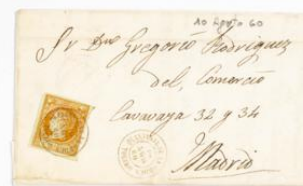 10 Agosto 60
Sr Dn Gregorio Rodriguez
del Comercio
Cavavaya 32 y 34
Madrid